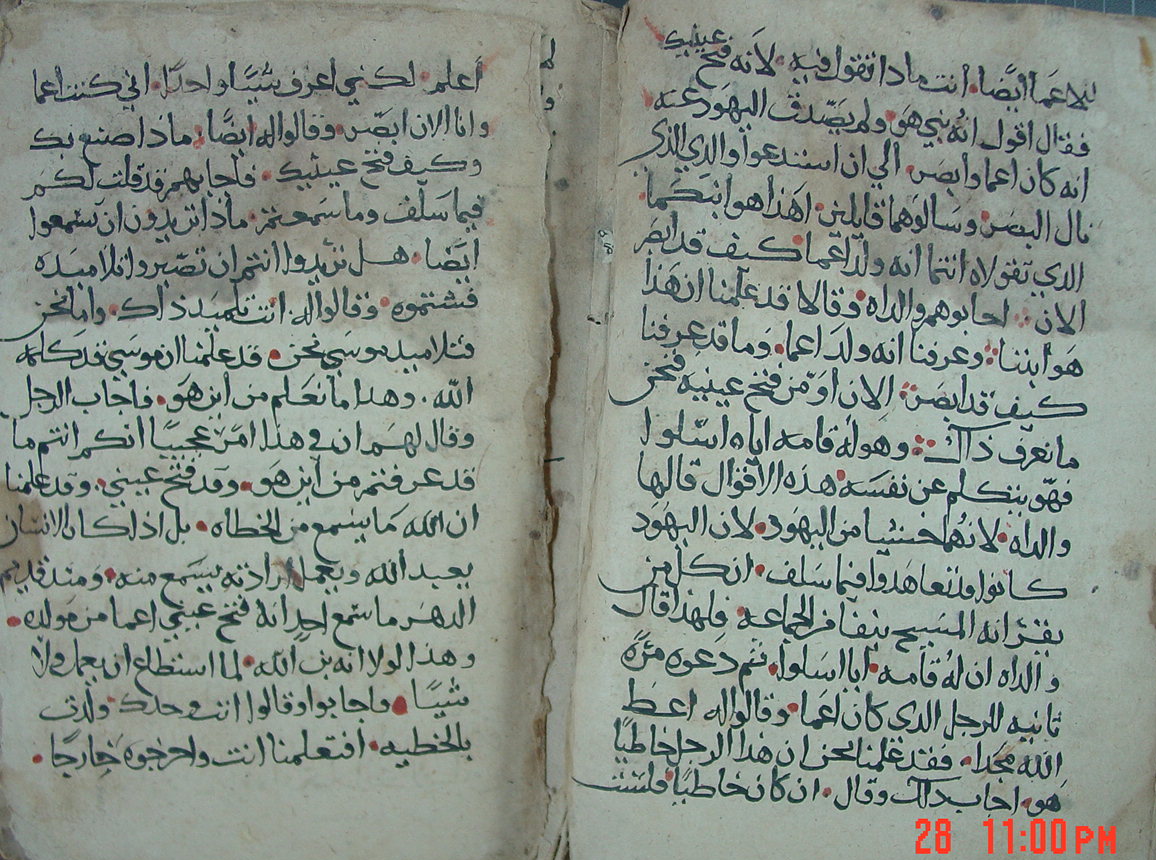 للاعما ايضًا. انت ماذا تقول فيه. لانه فتح عينيك
فقال اقول انه نبي هو. ولم يصدق اليهود عنه
انه كان اعما وابصر. الي ان استدعوا والدي الذي
نال البصر. وسالوهما قايلين. اهذا هو ابنكما.
الدي تقولاه انتما انه ولد اعما كيف قد ابصر
الان. اجابوهم والداه. وقالا قد علمنا ان هذا
هو ابننا. وعرفنا انه ولد اعما. وما قد عرفنا
كيف قد ابصر. الان او من فتح عينيه فنحن
ما نعرف ذاك. وهو له قامه اياه اسلوا
فهو يتكلم عن نفسه. هذه الاقوال قالها
والداه. لانهما خشيا من اليهود. لان اليهود
كانوا قد تعاهدوا فيما سلف. ان كل من
يقر انه المسيح ينفا من الجماعه. فلهذا قال
والداه ان له قامه. ايا اسلوا. ثم دعوه مرةً
ثانيه للرجل الدي كان اعما. وقالوا له اعط
الله مجدا. فقد علمنا نحن ان هذا الرجل خاطيًا
هو. اجاب داك وقال. ان كان خاطيًا فلست
أعلم. لكني اعرف شيًا واحدًا. اني كنت اعما
وانا الان ابصر. وقالوا له ايضًا. ماذا صنع بك
وكيف فتح عينيك. فاجابهم قد قلت لكم
فيما سلف وما سمعتم. ماذا تريدون ان تسمعوا
ايضا. هل تريدوا انتم ان تصيروا تلاميده
فشتموه. وقالوا له انت تلميد ذاك. واما نحن
فتلاميد موسي نحن. قد علمنا ان موسي قد كلمه
الله. وهدا ما نعلم من اين هو. فاجاب الرجل
وقال لهم ان في هذا امرً عجيبًا انكم انتم ما
قد عرفتم من اين هو. وقد فتح عيني. وقد علمنا
ان الله ما يسمع من الخطاه. بل اذا كان الانسان
يعبد الله ويعمل ارادته يسمع منه. ومند قديم
الدهر ما سمع احد انه فتح عيني اعما من مولده.
وهذا لولا انه من الله. لما استطاع ان يعمل ولا
شيًا. فاجابوا وقالوا انت وحدك ولدت
بالخطيه. افتعلمنا انت واخرجوه خارجًا.
28 11:00 PM